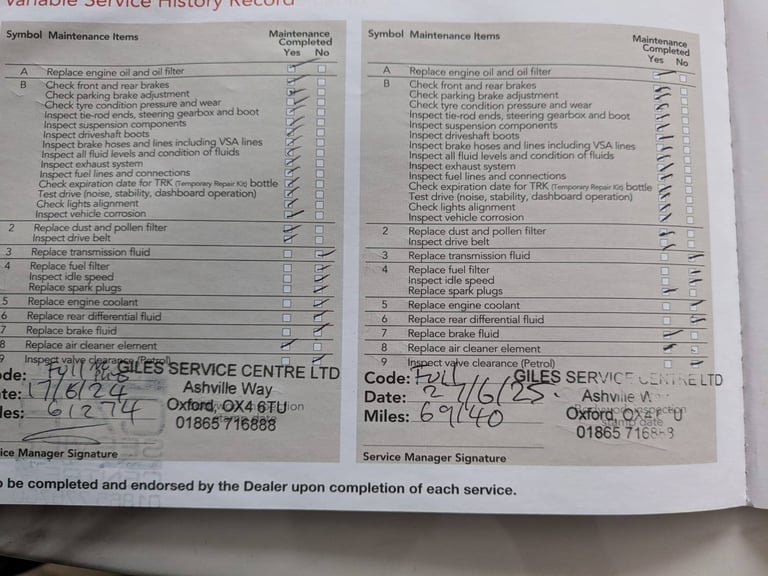 Variable Service History Record
Symbol Maintenance Items
Maintenance
Completed
Yes No
A Replace engine oil and oil filter
B Check front and rear brakes
Check parking brake adjustment
Check tyre condition pressure and wear
Inspect tie-rod ends, steering gearbox and boot
Inspect suspension components
Inspect driveshaft boots
Inspect brake hoses and lines including VSA lines
Inspect all fluid levels and condition of fluids
Inspect exhaust system
Inspect fuel lines and connections
Check expiration date for TRK (Temporary Repair Kit) bottle
Test drive (noise, stability, dashboard operation)
Check lights alignment
Inspect vehicle corrosion
2 Replace dust and pollen filter
Inspect drive belt
3 Replace transmission fluid
4 Replace fuel filter
Inspect idle speed
Replace spark plugs
5 Replace engine coolant
6 Replace rear differential fluid
7 Replace brake fluid
8 Replace air cleaner element
9 Inspect valve clearance (Petrol)
ode: Full
te: 17/6/24
les: 61274
GILES SERVICE CENTRE LTD
Ashville Way
Oxford, OX4 6TU
01865 716888
stamp date
ice Manager Signature
Symbol Maintenance Items
Maintenance
Completed
Yes No
A Replace engine oil and oil filter
B Check front and rear brakes
Check parking brake adjustment
Check tyre condition pressure and wear
Inspect tie-rod ends, steering gearbox and boot
Inspect suspension components
Inspect driveshaft boots
Inspect brake hoses and lines including VSA lines
Inspect all fluid levels and condition of fluids
Inspect exhaust system
Inspect fuel lines and connections
Check expiration date for TRK (Temporary Repair Kit) bottle
Test drive (noise, stability, dashboard operation)
Check lights alignment
Inspect vehicle corrosion
2 Replace dust and pollen filter
Inspect drive belt
3 Replace transmission fluid
4 Replace fuel filter
Inspect idle speed
Replace spark plugs
5 Replace engine coolant
6 Replace rear differential fluid
7 Replace brake fluid
8 Replace air cleaner element
9 Inspect valve clearance (Petrol)
Code: Full
Date: 27/6/25.
Miles: 69140
GILES SERVICE CENTRE LTD
Ashville W
Oxford, OX4 U
stamp date
01865 716888
Service Manager Signature
o be completed and endorsed by the Dealer upon completion of each service.